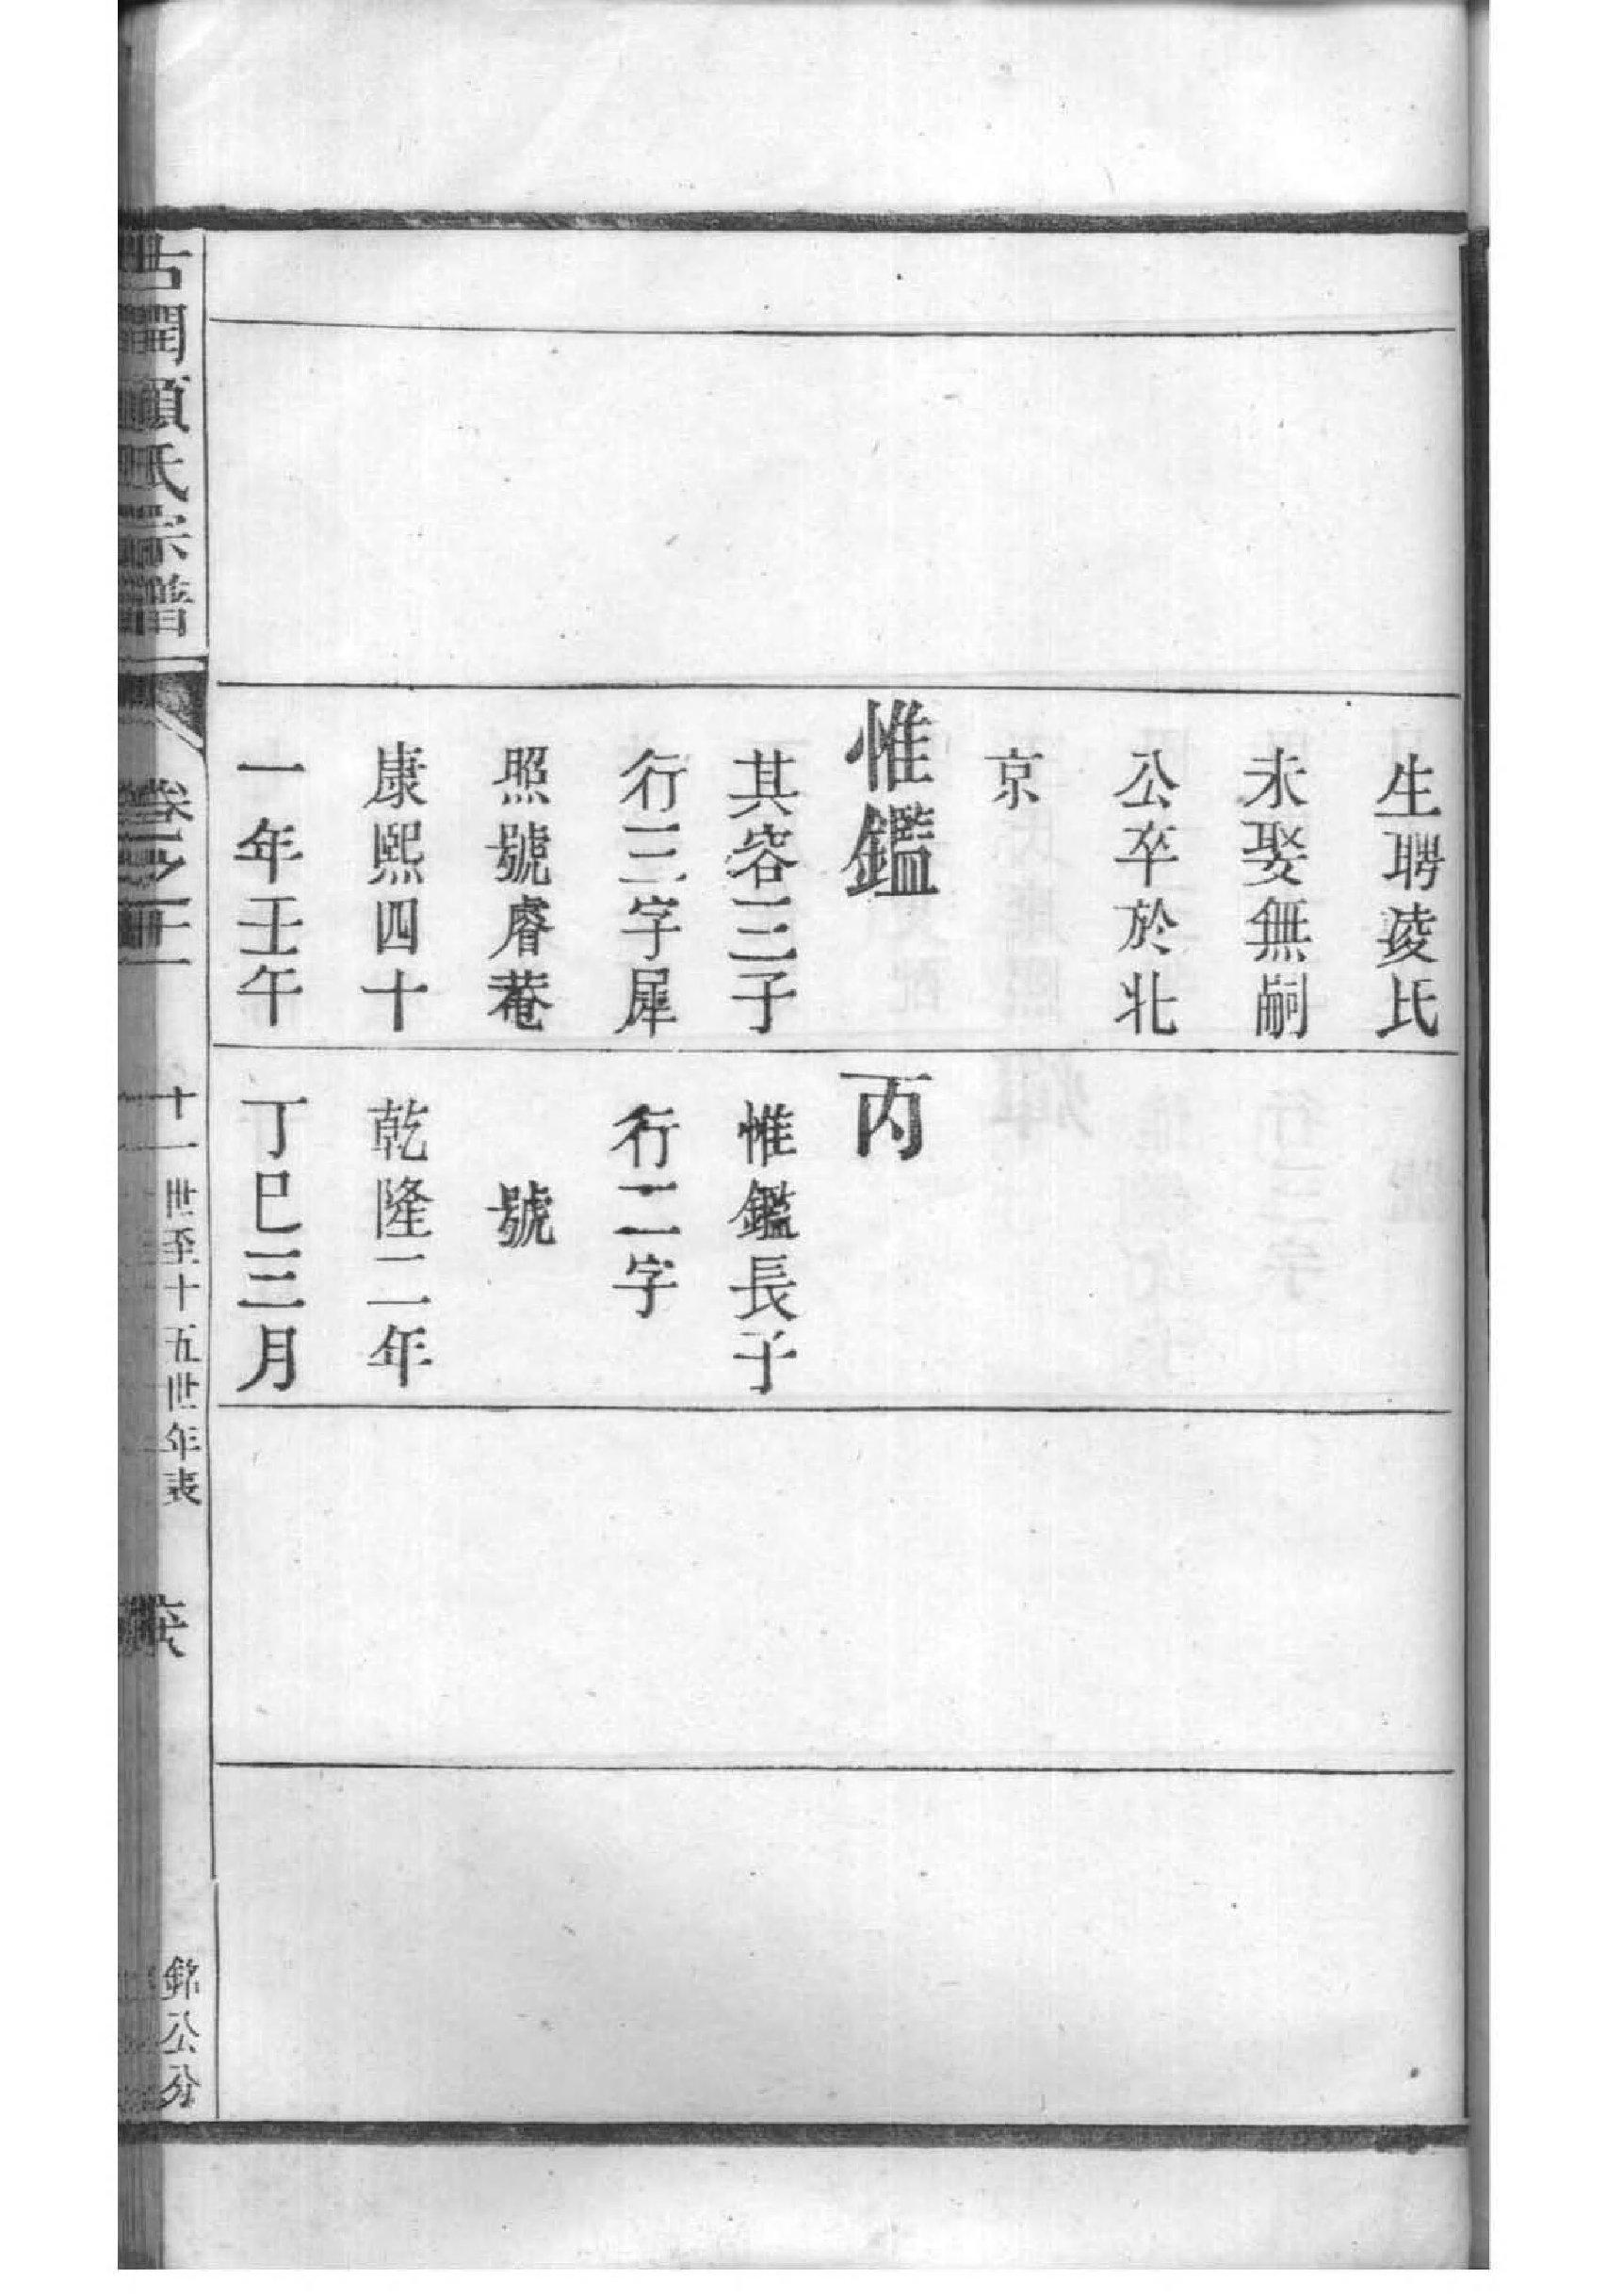 生聘凌氏
未娶無嗣
公卒於北
京
惟鑑
其容三子
行三字犀
照號睿菴
康熙四十
一年壬午
丙
惟鑑長子
行二字
號
乾隆二年
丁巳三月
氏宗譜
卷
十一世至十五世年表
銘公分